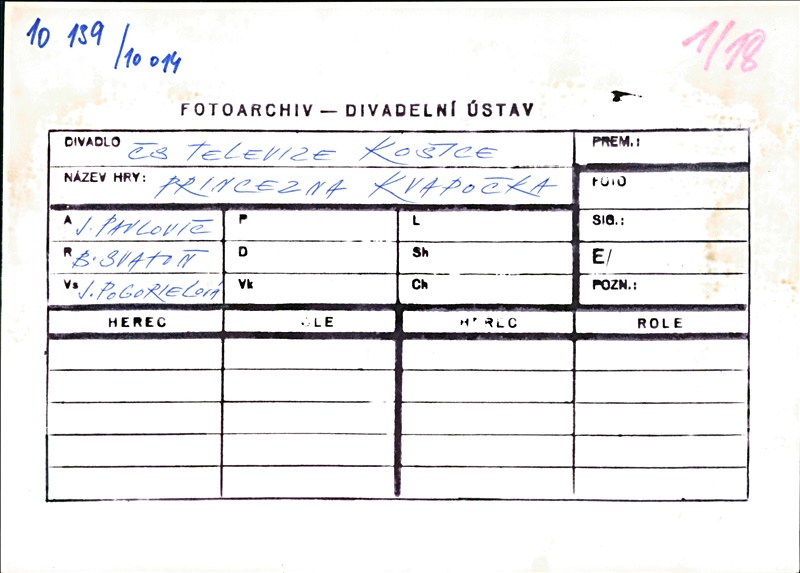 10 139/10 014
1/18
FOTOARCHIV — DIVADELNÍ ÚSTAV
DIVADLO ČS TELEVIZE KOŠICE
PREM.:
NÁZEV HRY: PRINCEZNA KVAPOČKA
FOTO
A J. PAVLOVIČ P L SIG.:
R B. SVATOŇ D Sh E/
Vs J. POGORIELOVÁ Vk Ch POZN.:
HEREC ROLE HEREC ROLE